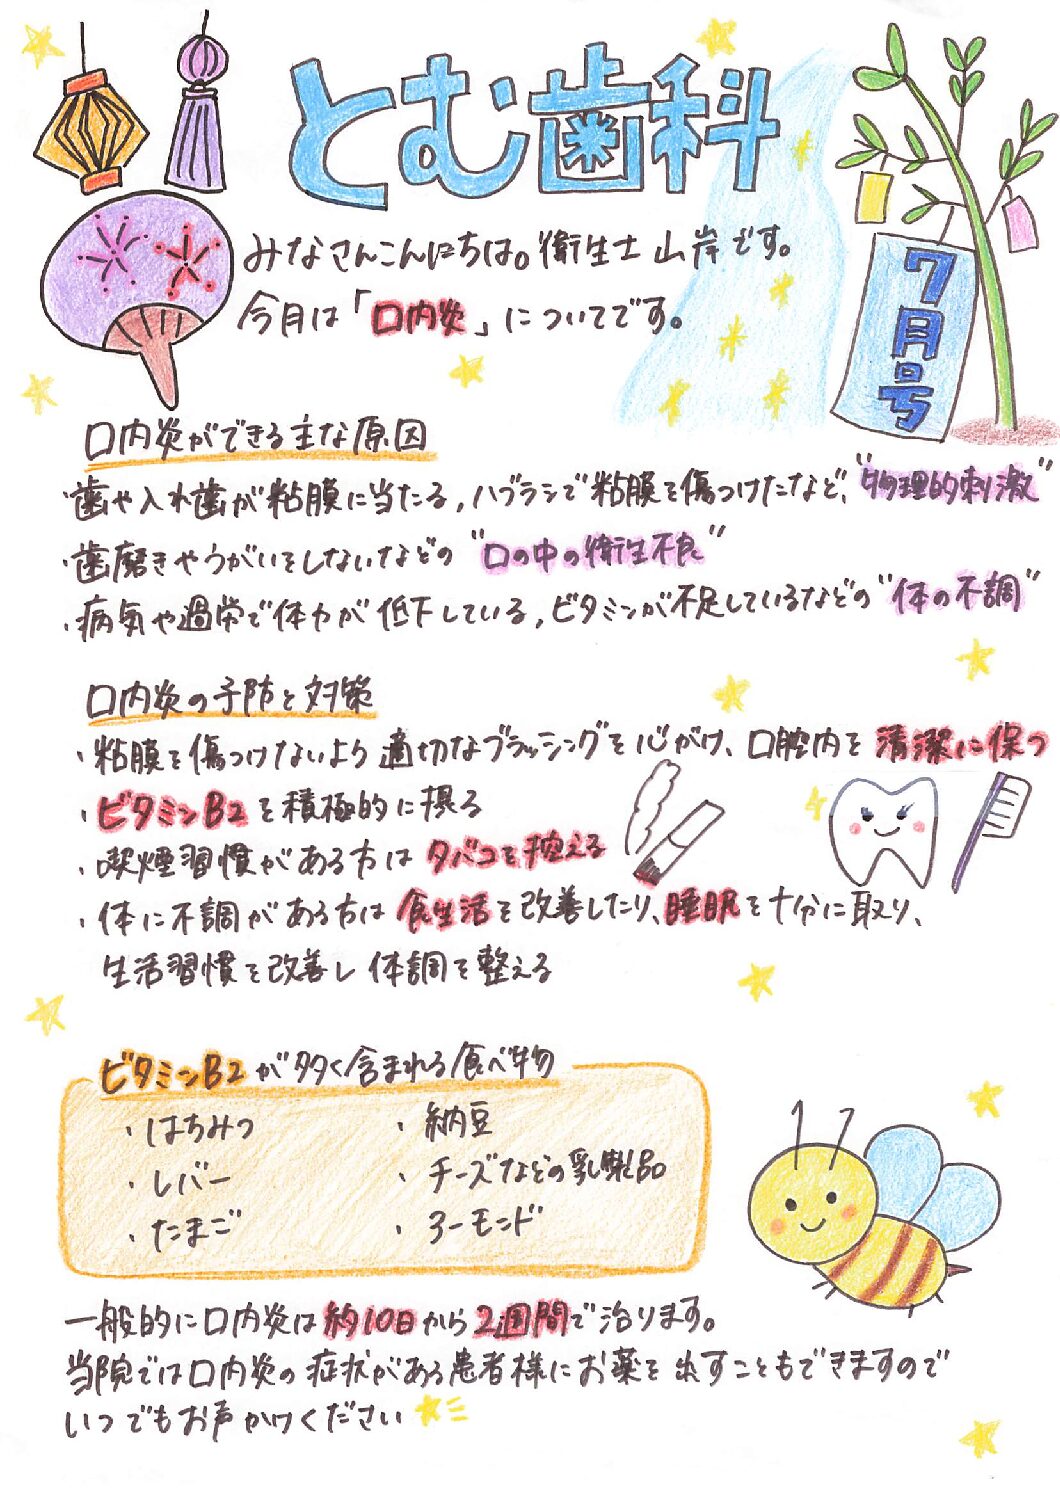 とむ歯科
7月号
みなさんこんにちは。衛生士 山岸です。
今月は「口内炎」についてです。
口内炎ができる主な原因
・歯や入れ歯が粘膜に当たる,ハブラシで粘膜を傷つけたなど、"物理的刺激"
・歯磨きやうがいをしないなどの "口の中の衛生不良"
・病気や過労で体力が低下している,ビタミンが不足しているなどの"体の不調"
口内炎の予防と対策
・粘膜を傷つけないよう適切なブラッシングを心がけ、口腔内を清潔に保つ
・ビタミンB2を積極的に摂る
・喫煙習慣がある方はタバコを控える
・体に不調がある方は食生活を改善したり、睡眠を十分に取り、
生活習慣を改善し体調を整える
ビタミンB2が多く含まれる食べ物
・はちみつ ・納豆
・レバー ・チーズなどの乳製品
・たまご ・アーモンド
一般的に口内炎は約10日から2週間で治ります。
当院では口内炎の症状がある患者様にお薬を出すこともできますので
いつでもお声かけください